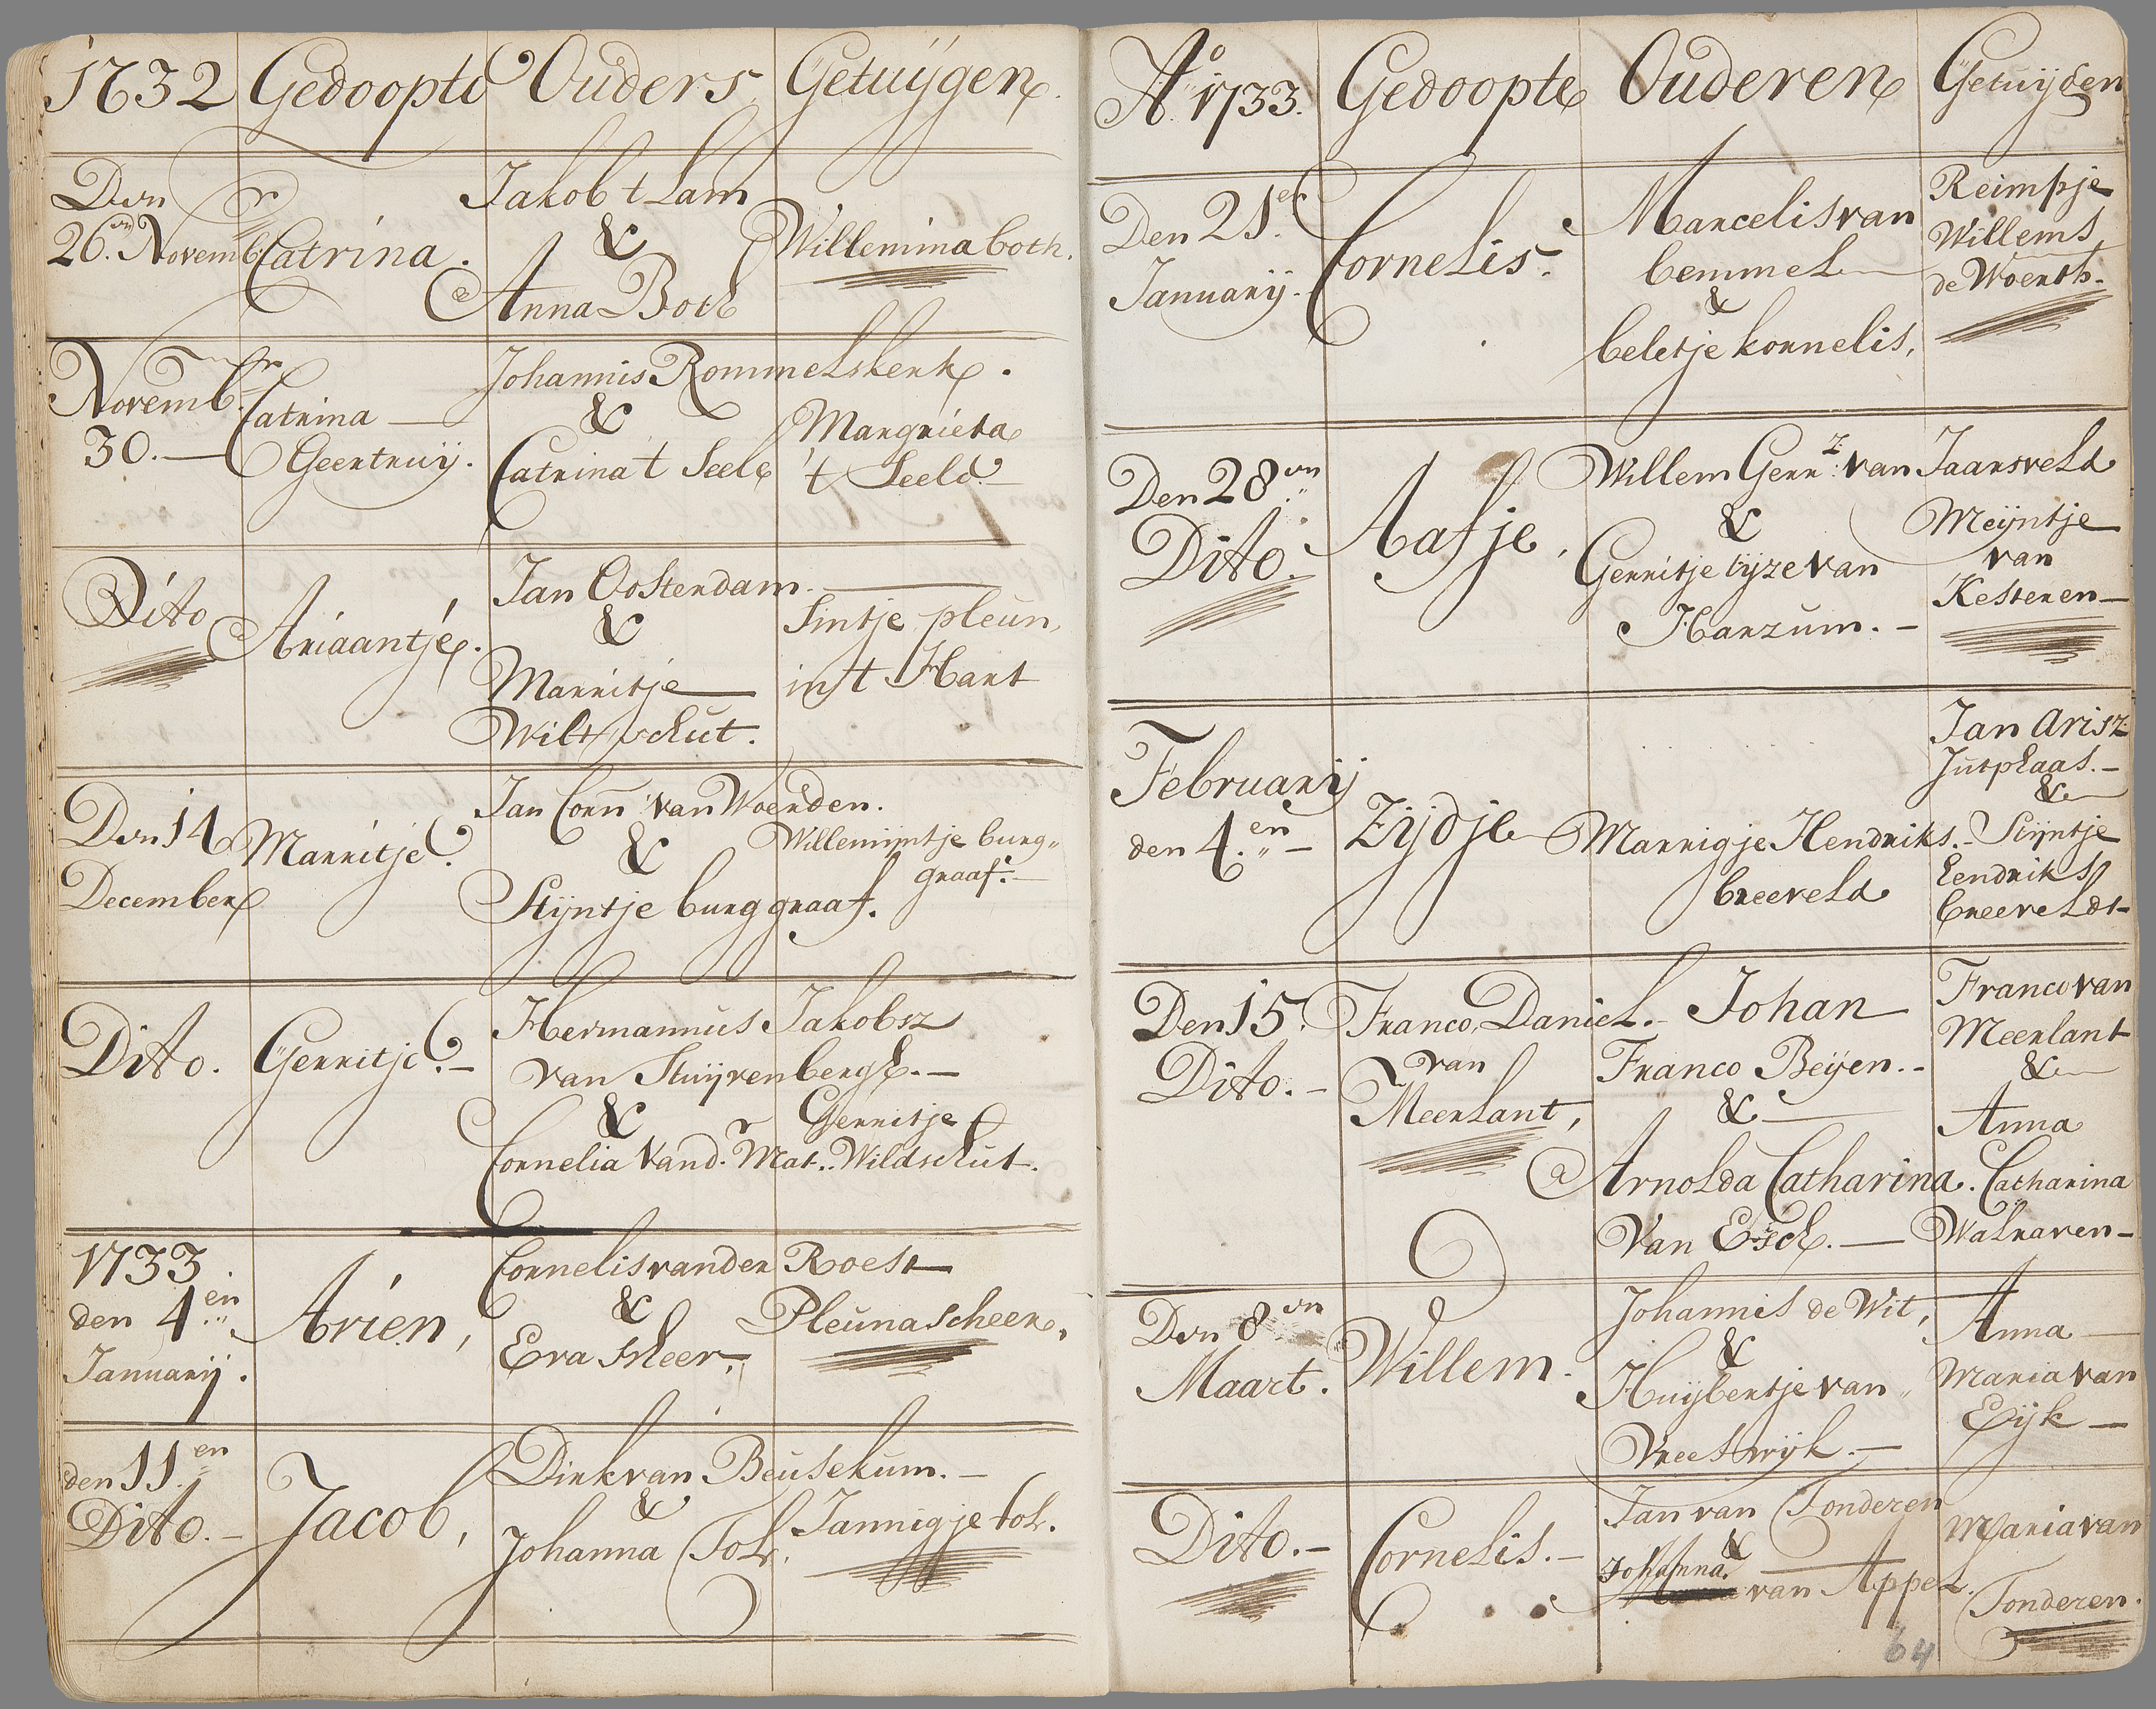 1732 Gedoopte Ouders Getuijgen.
Den Jakob t Lam
26.en Novemb. Catrina. & Willemina both.
Anna Both
Novemb. Johannis Rommelskerk.
30.— Catrina — & Margrieta
Geertruij. Catrina t Seele 't Seele.
Dito Ariaantje. Jan Oostendam.
& Sintje pleun,
Marritje in 't Hart
Wiltschut.
Den 14 Marritje. Jan Corn: van Woerden.
December & Willemijntje burg„
Stijntje burggraaf. graaf.—
Dito. Gerritje.— Hermannus Jakobsz
van Stuijvenbergh.—
& Gerritje
Cornelia vand.r Mat.. Wildschut.
1733 Cornelis vander Roest
den 4.en Arien, & Pleuna scheer,
Januarij. Eva Scheer,
den 11.en Dirk van Beusekum.—
Dito.— Jacob, & Jannigje tol.
Johanna Tol.
Ao 1733. Gedoopte Ouderen Getuijgen
Den 21.en Cornelis. Marcelis van Reimpje
Januarij. bemmel Willems
& de Woerth.
beletje kornelis,
Den 28.en Aafje, Willem Gerr.z van Jaarsveld
Dito. & Meijntje
Gerritje tijze van van
Harzum.— Kesteren—
Februarij Jan Arisz
den 4.en— Zijdje Marrigje Hendriks.- Jutplaas.—
breeveld &
Stijntje
Hendriks
breeveldt—
Den 15. Franco, Daniel.- Johan Franco van
Dito.— van Franco Beijen.- Meerlant
Meerlant, & &
Arnolda Catharina. Anna
Van Esch.— Catharina
Walraven—
Den 8.en Willem. Johannis de Wit, Anna—
Maart. & Maria van
Huijbertje van„ Eijk—
Vreeswijk.—
Dito.— Cornelis.— Jan van Tonderen Maria van
& Tonderen.
Johanna van Appel.
64